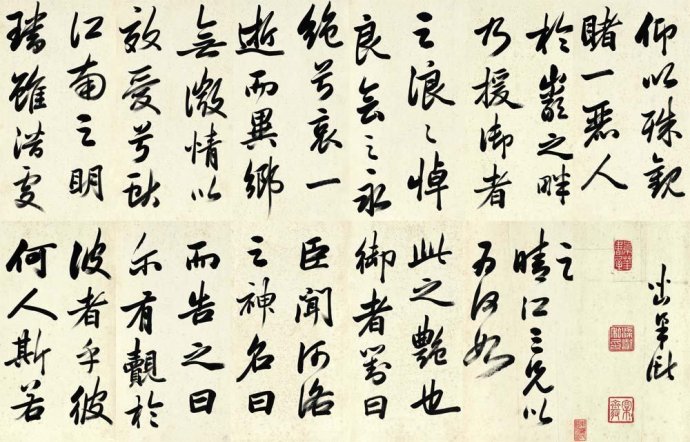 仰以殊觀
睹一麗人
於巖之畔
乃援御者
之浪々悼
良會之永
絕兮哀一
逝而異鄉
無微情以
效愛兮獻
江南之明
璫雖潛處
之
晴江三兄以
为何如
此之艷也
御者對曰
臣聞河洛
之神名曰
而告之曰
尔有覿於
彼者乎彼
何人斯若